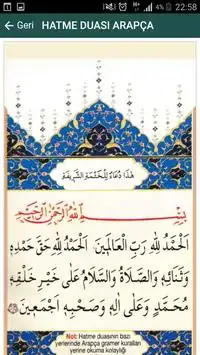 22:58
Geri HATME DUASI ARAPÇA
هٰذَا دُعَاءٌ لِلْخَتْمَةِ الشَّرِيفَةِ
بِسْمِ اللّٰهِ الرَّحْمٰنِ الرَّحِيمِ
اَلْحَمْدُ لِلّٰهِ رَبِّ الْعَالَمِينَ. اَلْحَمْدُ لِلّٰهِ حَقَّ حَمْدِهِ
وَثَنَائِهِ وَالصَّلَاةُ وَالسَّلَامُ عَلَى خَيْرِ خَلْقِهِ
مُحَمَّدٍ وَعَلَى اٰلِهِ وَصَحْبِهِ اَجْمَعِينَ
Not: Hatme duasının bazı
yerlerinde Arapça gramer kuralları
yerine okuma kolaylığı